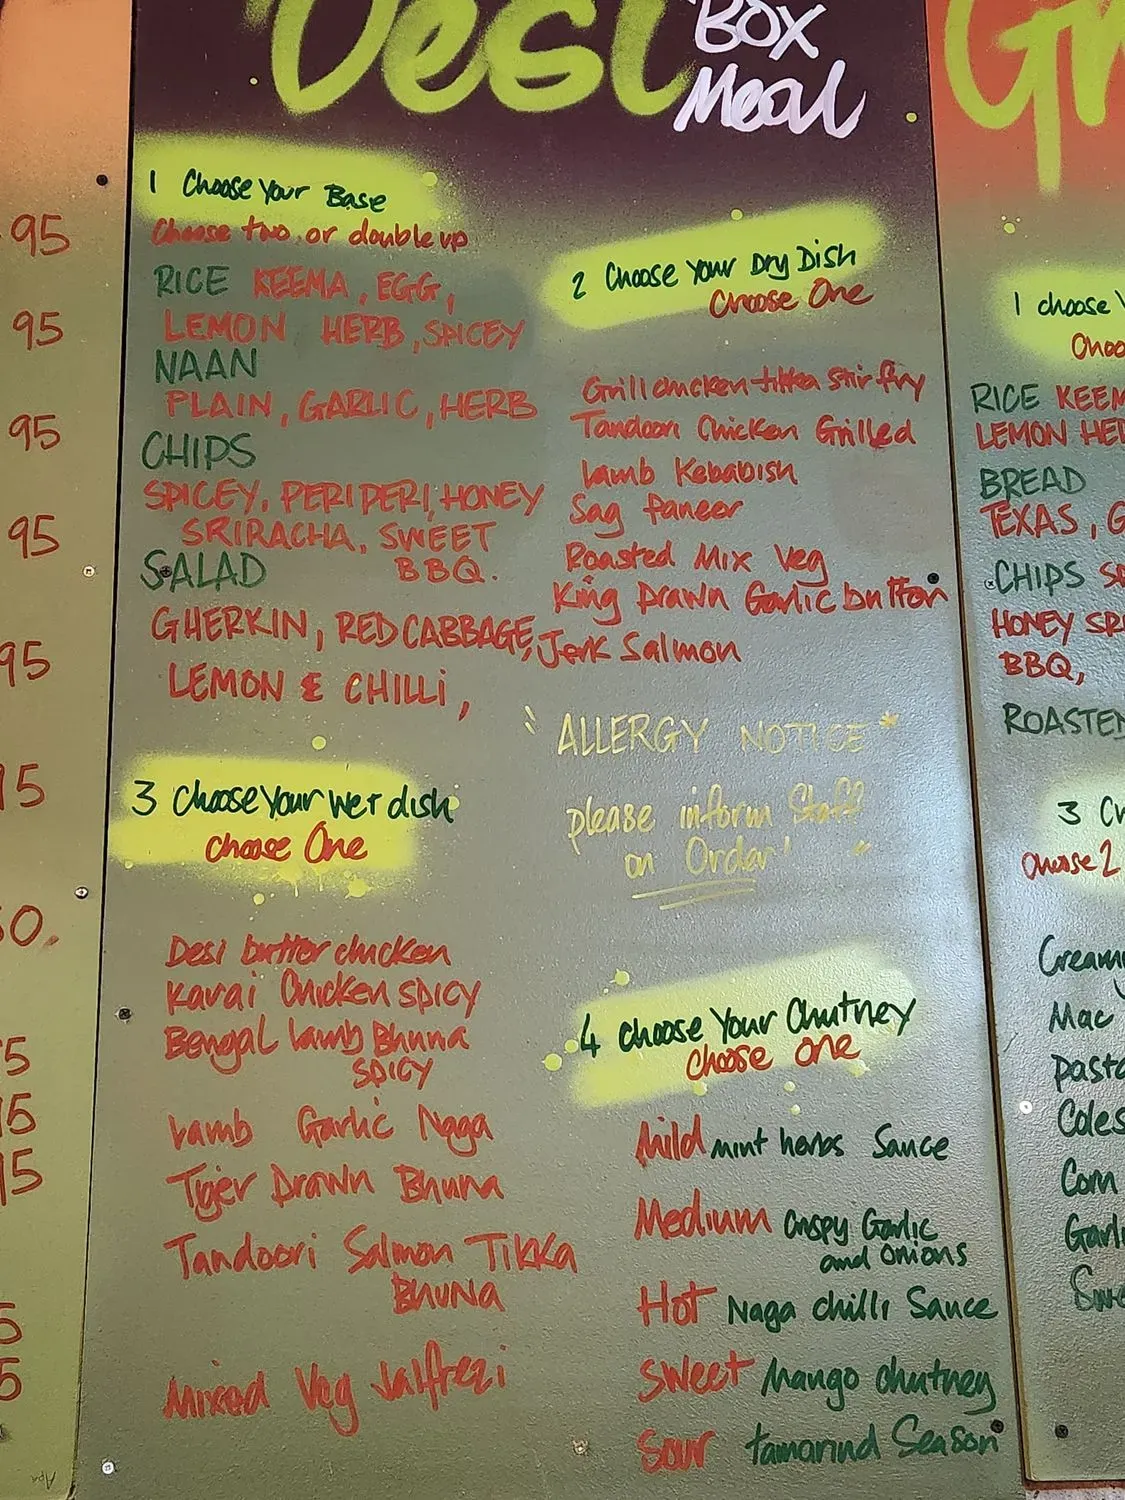 Desi BOX
Meal
1 Choose Your Base
Choose two or double up
RICE KEEMA, EGG,
LEMON HERB, SPICEY
NAAN
PLAIN, GARLIC, HERB
CHIPS
SPICEY, PERI PERI, HONEY
SRIRACHA, SWEET
BBQ.
SALAD
GHERKIN, RED CABBAGE,
LEMON & CHILLI,
2 Choose Your Dry Dish
Choose One
Grill chicken tikka stir fry
Tandoori Chicken Grilled
lamb Kebabish
Sag Paneer
Roasted Mix Veg
King Prawn Garlic butter
Jerk Salmon
"ALLERGY NOTICE*
please inform Staff
on Order! "
3 Choose Your wet dish
choose One
Desi butter chicken
Karai Chicken SPICY
Bengal lamb Bhuna
SPICY
Lamb Garlic Naga
Tiger Prawn Bhuna
Tandoori Salmon TIKKA
BHUNA
Mixed Veg Jalfrezi
4 choose Your Chutney
choose one
Mild mint herbs Sauce
Medium crispy Garlic
and onions
Hot Naga chilli Sauce
Sweet Mango chutney
Sour tamarind Season
95
95
95
95
95
15
50.
5
15
15
5
5
Gr
1 choose
Choo
RICE KEEM
LEMON HE
BREAD
TEXAS, G
CHIPS SP
HONEY SR
BBQ,
ROASTE
3 C
Choose 2
Creamy
Mac
pasta
Coles
Corn
Garl
Swe